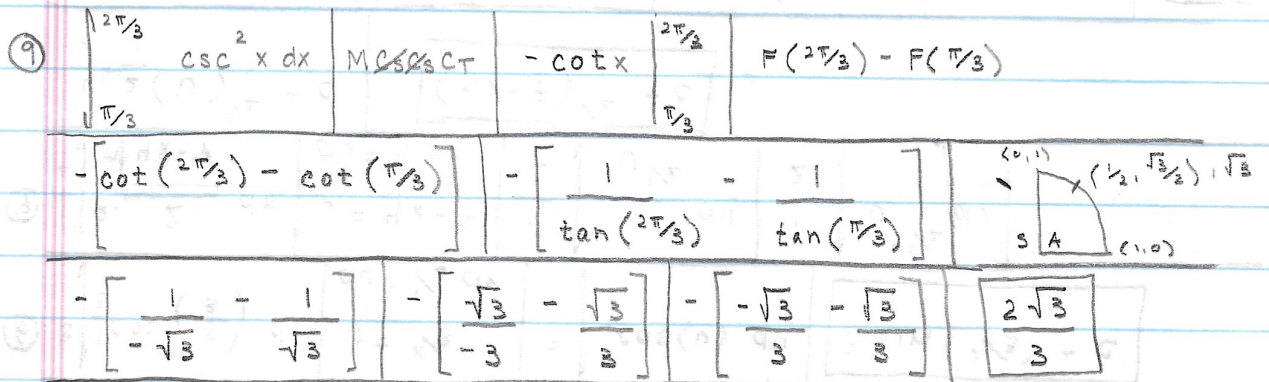 9 ∫ 2π/3 π/3 csc² x dx | M CSCS CT | - cot x | 2π/3 π/3 | F(2π/3) - F(π/3)
- [cot(2π/3) - cot(π/3)] | - [1/tan(2π/3) - 1/tan(π/3)] | (0,1) (1/2, √3/2), √3 S A (1,0)
- [1/-√3 - 1/√3] | - [√3/-3 - √3/3] | - [-√3/3 - √3/3] | 2√3/3